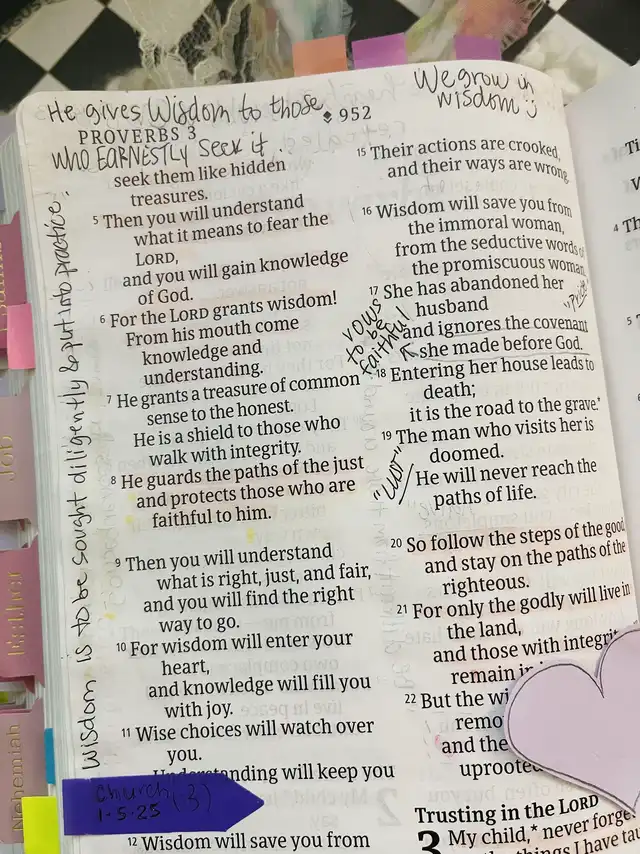 He gives Wisdom to those
PROVERBS 3
952
who EARNESTLY seek it.
We grow in
wisdom
Wisdom is to be sought diligently & put into practice.
seek them like hidden
treasures.
5 Then you will understand
what it means to fear the
LORD,
and you will gain knowledge
of God.
6 For the LORD grants wisdom!
From his mouth come
knowledge and
understanding.
7 He grants a treasure of common
sense to the honest.
He is a shield to those who
walk with integrity.
8 He guards the paths of the just
and protects those who are
faithful to him.
9 Then you will understand
what is right, just, and fair,
and you will find the right
way to go.
10 For wisdom will enter your
heart,
and knowledge will fill you
with joy.
11 Wise choices will watch over
you.
Understanding will keep you
Church (3)
1-5-25
12 Wisdom will save you from
15 Their actions are crooked,
and their ways are wrong.
16 Wisdom will save you from
the immoral woman,
from the seductive words of
the promiscuous woman.
17 She has abandoned her
husband
and ignores the covenant
she made before God.
vows
to be
faithful
18 Entering her house leads to
death;
it is the road to the grave.*
19 The man who visits her is
doomed.
He will never reach the
paths of life.
20 So follow the steps of the good,
and stay on the paths of the
righteous.
21 For only the godly will live in
the land,
and those with integri
remain in
22 But the wi
remo
and the
uproote
Trusting in the LORD
3 My child,* never forget
the things I have tau
Job
Esther
Nehemiah